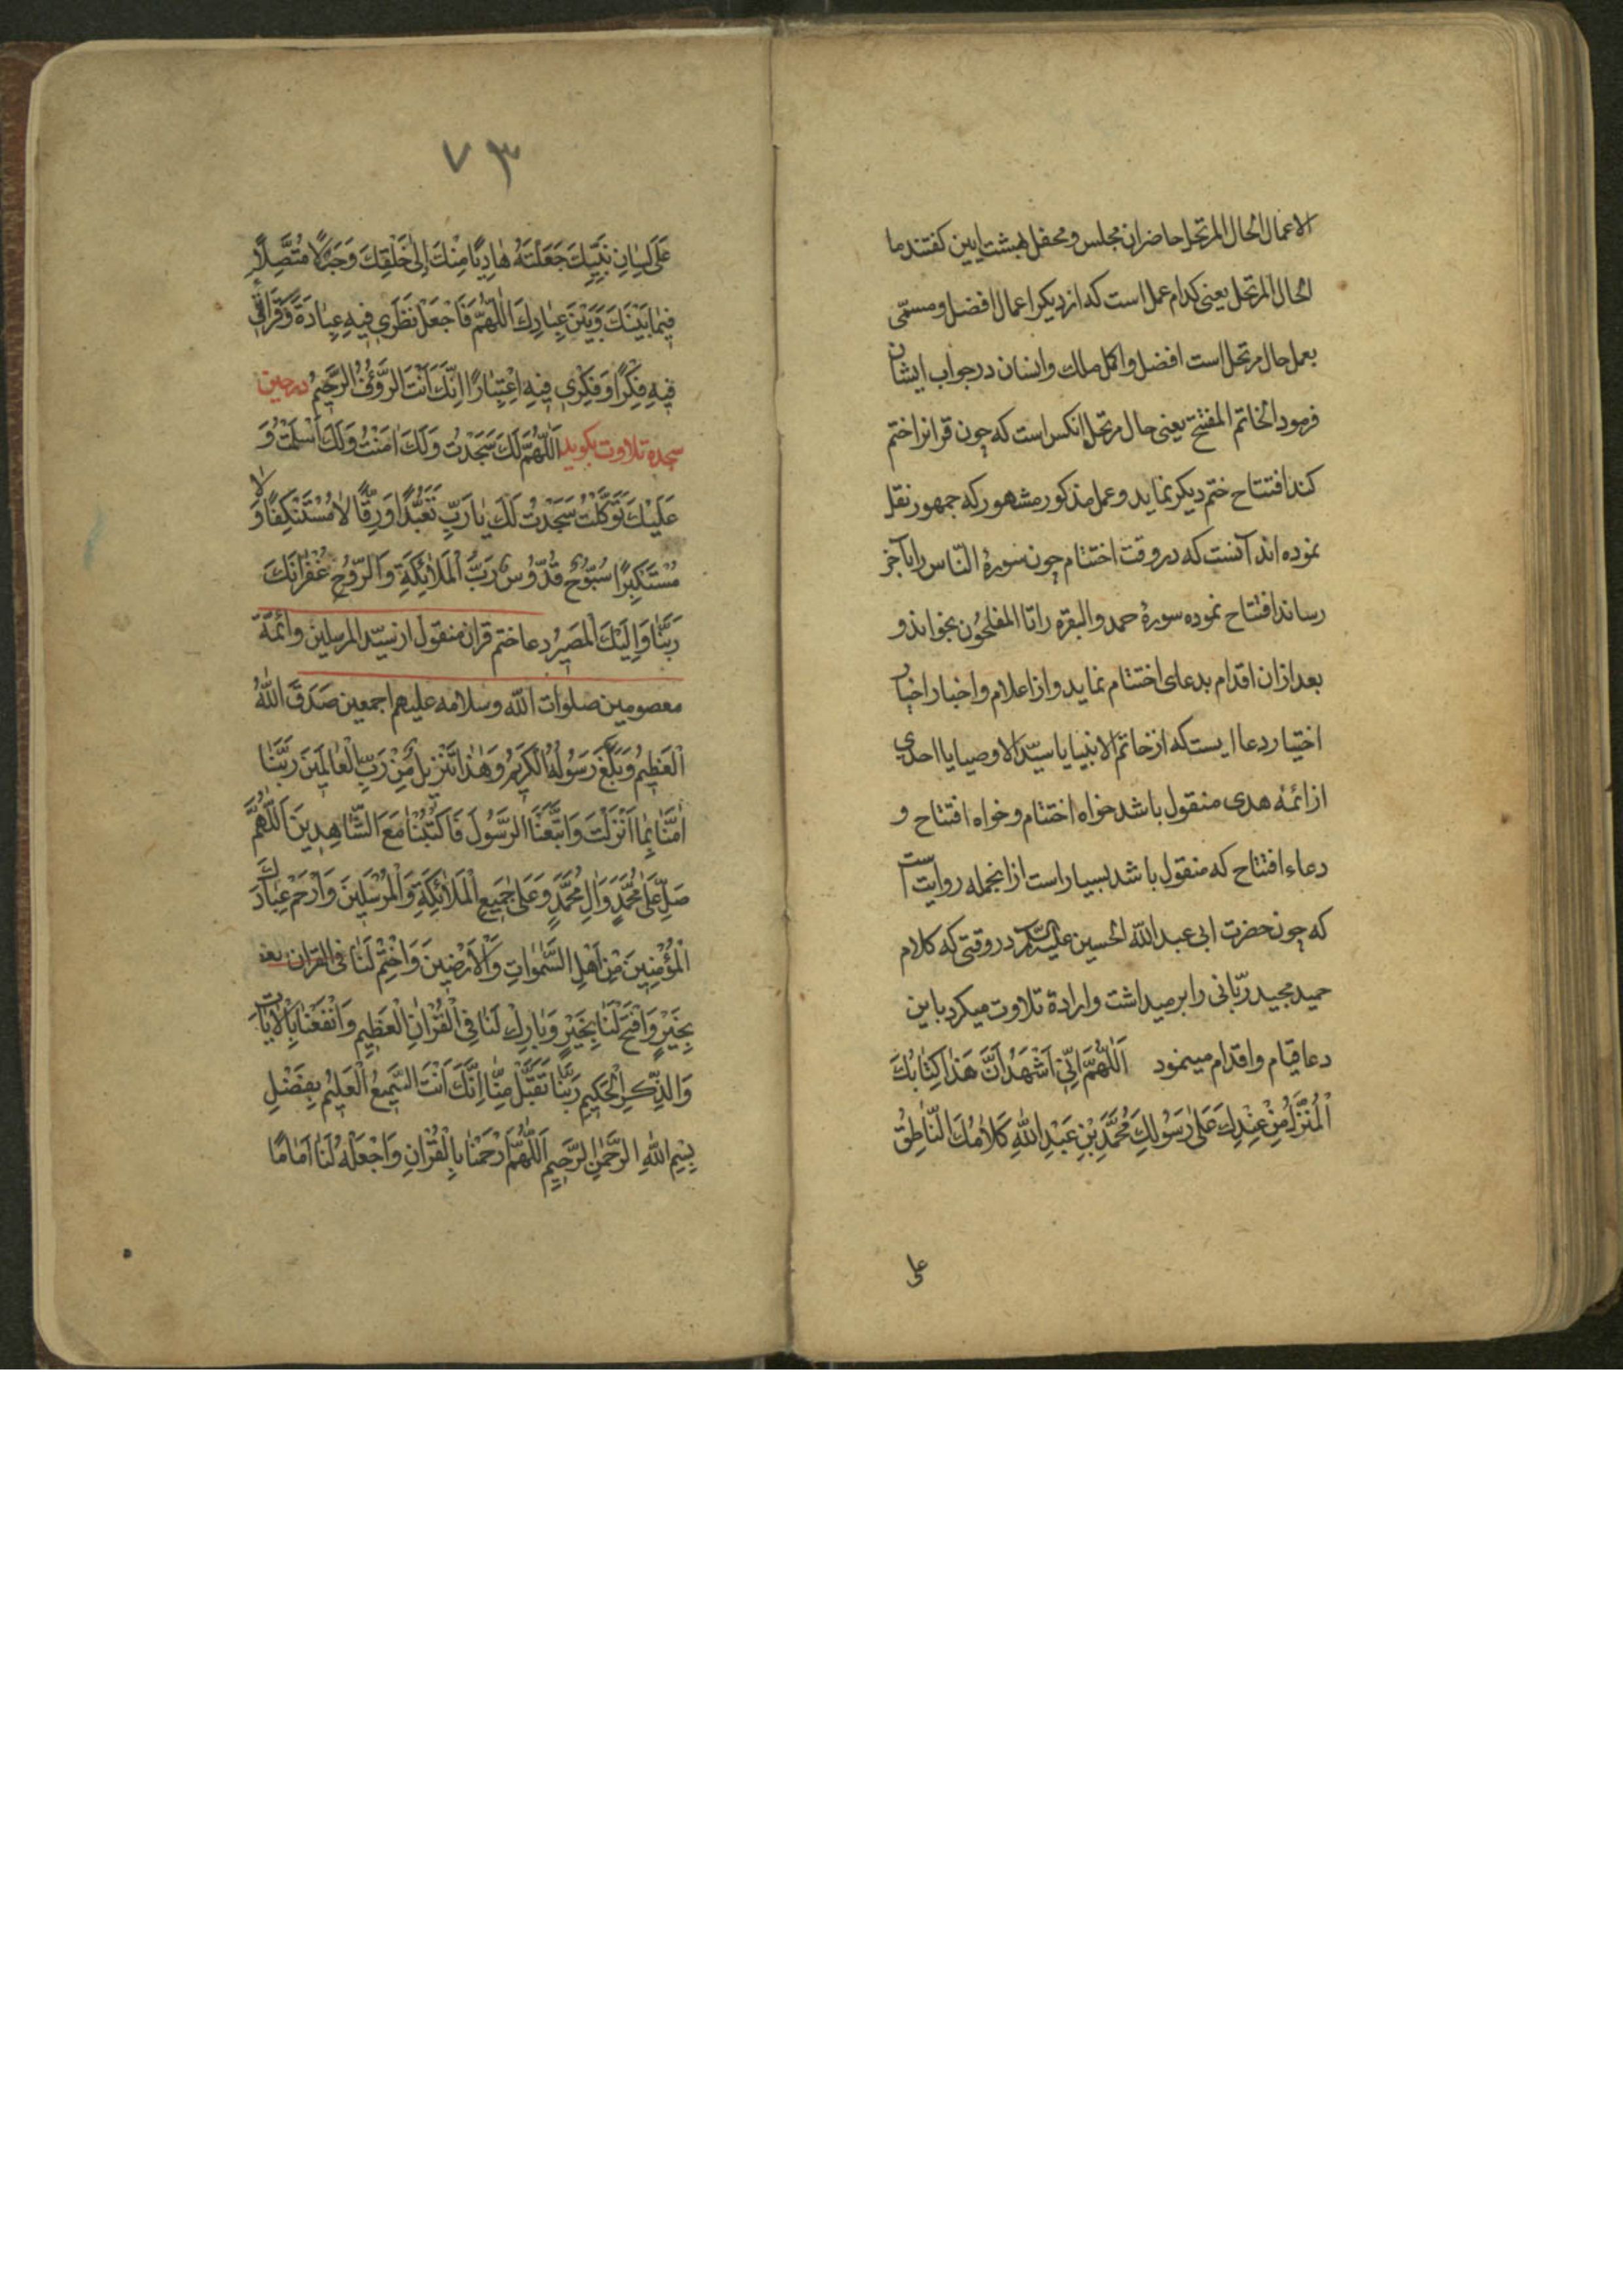 الاعمال الحال المرتحل حاضران مجلس و محفل بهشت ایین کفتند ما
الحال المرتحل یعنی کدام عمل است که از دیکر اعمال افضل و مسمّی
بعمل حال مرتحل است افضل و اکمل ملك و انسان در جواب ایشان
فرمود الخاتم المفتتح یعنی حال مرتحل انکس است که چون قرانرا ختم
کند افتتاح ختم دیکر نماید و عمل مذکور مشهور که جمهور نقل
نموده اند آنست که در وقت اختتام چون سورۀ النّاس را بآخر
رساند افتتاح نموده سورۀ حمد و البقره را تا المفلحُون بخواند و
بعد ازان اقدام بدعای اختتام نماید و از اعلام و اخبار اخیار
اختیار دعا ایست که از خاتم الانبیا یا سیّد الاوصیا یا احدی
از ائمّۀ هدی منقول باشد خواه اختتام و خواه افتتاح و
دعاء افتتاح که منقول باشد بسیار است از انجمله روایت است
که چون حضرت ابی عبد اللّه الحسین علیه السّلام در وقتی که کلام
حمید مجید ربّانی را بر میداشت و ارادۀ تلاوت میکرد باین
دعا قیام و اقدام مینمود اَللّٰهُمَّ اِنّٖی اَشْهَدُ اَنَّ هَذٰا کِتٰابُكَ
الْمُنْزَلُ مِنْ عِنْدِكَ عَلیٰ رَسُولِكَ مُحَمَّدِ بْنِ عَبْدِ اللّٰهِ کَلاٰمُكَ النّٰاطِقُ
علی
۷۳
عَلیٰ لِسٰانِ نَبِیِّكَ جَعَلْتَهُ هٰادِیًا مِنْكَ اِلیٰ خَلْقِكَ وَ حَبْلًا مُتَّصِلًا
فٖیمٰا بَیْنَكَ وَ بَیْنَ عِبٰادِكَ اَللّٰهُمَّ فَاجْعَلْ نَظَرٖی فٖیهِ عِبٰادَةً وَ قَرٰائَتٖی
فٖیهِ فِکْرًا وَ فِکْرٖی فٖیهِ اعْتِبٰارًا اِنَّكَ اَنْتَ الرَّؤُفُ الرَّحٖیمُ در حین
سجده تلاوت بکوید اَللّٰهُمَّ لَكَ سَجَدْتُ وَ لَكَ اٰمَنْتُ وَ لَكَ اَسْلَمْتُ وَ
عَلَیْكَ تَوَکَّلْتُ سَجَدْتُ لَكَ یٰا رَبِّ تَعَبُّدًا وَ رِقًّا لاٰ مُسْتَنْکِفًا وَ لاٰ
مُسْتَکْبِرًا سُبُّوحٌ قُدُّوسٌ رَبُّ الْمَلاٰئِکَةِ وَ الرُّوحِ غُفْرٰانَكَ
رَبَّنٰا وَ اِلَیْكَ الْمَصٖیرُ دعا ختم قران منقول از سیّد المرسلین و ائمّه
معصومین صلوات اللّه و سلامه علیهم اجمعین صَدَقَ اللّٰهُ
الْعَظٖیمُ وَ بَلَّغَ رَسُولُهُ الْکَرٖیمُ وَ هٰذٰا تَنْزٖیلٌ مِنْ رَبِّ الْعٰالَمٖینَ رَبَّنٰا
اٰمَنّٰا بِمٰا اَنْزَلْتَ وَ اتَّبَعْنَا الرَّسُولَ فَاکْتُبْنٰا مَعَ الشّٰاهِدٖینَ اَللّٰهُمَّ
صَلِّ عَلیٰ مُحَمَّدٍ وَ اٰلِ مُحَمَّدٍ وَ عَلیٰ جَمٖیعِ الْمَلاٰئِکَةِ وَ الْمُرْسَلٖینَ وَ ارْحَمْ عِبٰادَكَ
الْمُؤْمِنٖینَ مِنْ اَهْلِ السَّمٰوٰاتِ وَ الْاَرَضٖینَ وَ اخْتِمْ لَنٰا فی القران
بِخَیْرٍ وَ افْتَحْ لَنٰا بِخَیْرٍ وَ بٰارِكْ لَنٰا فِی الْقُرْاٰنِ الْعَظٖیمِ وَ انْفَعْنٰا بِالْاٰیٰاتِ
وَ الذِّکْرِ الْحَکٖیمِ رَبَّنٰا تَقَبَّلْ مِنّٰا اِنَّكَ اَنْتَ السَّمٖیعُ الْعَلٖیمُ بِفَضْلِ
بِسْمِ اللّٰهِ الرَّحْمٰنِ الرَّحٖیمِ اَللّٰهُمَّ ارْحَمْنٰا بِالْقُرْاٰنِ وَ اجْعَلْهُ لَنٰا اِمٰامًا